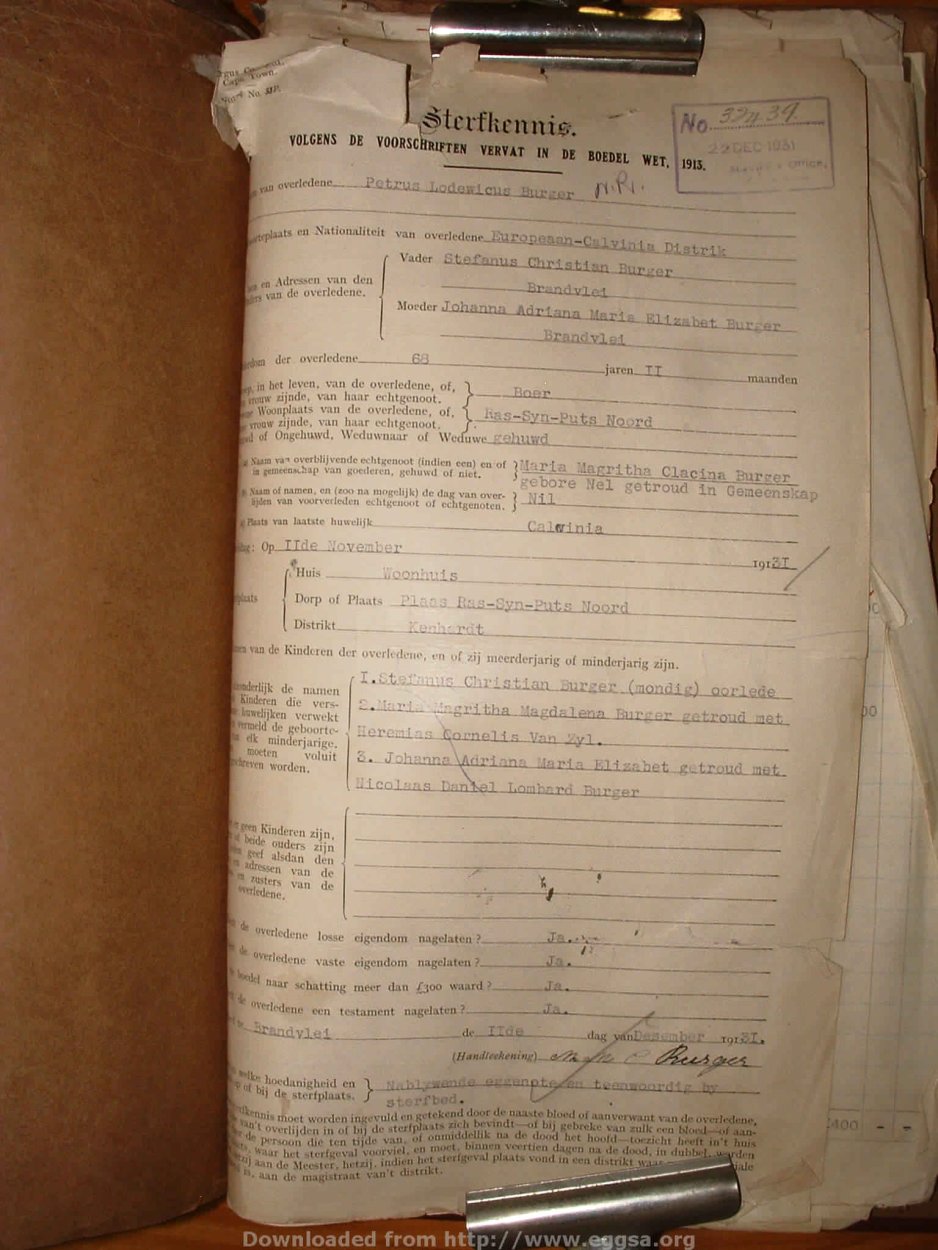 Cape Town.
No. 33P.
No. 32434
22 DEC 1931
Sterfkennis.
VOLGENS DE VOORSCHRIFTEN VERVAT IN DE BOEDEL WET, 1913.
van overledene Petrus Lodewicus Burger
plaats en Nationaliteit van overledene Europeaan-Calvinia Distrik
en Adressen van den
van de overledene.
Vader Stefanus Christian Burger
Brandvlei
Moeder Johanna Adriana Maria Elizabet Burger
Brandvlei
der overledene 68 jaren II maanden
in het leven, van de overledene, of,
vrouw zijnde, van haar echtgenoot.
Boer
Woonplaats van de overledene, of,
vrouw zijnde, van haar echtgenoot.
Ras-Syn-Puts Noord
of Ongehuwd, Weduwnaar of Weduwe gehuwd
Naam van overblijvende echtgenoot (indien een) en of
in gemeenschap van goederen, gehuwd of niet.
Maria Magritha Clacina Burger
gebore Nel getroud in Gemeenskap
Naam of namen, en (zoo na mogelijk) de dag van over-
lijden van voorverleden echtgenoot of echtgenoten.
Nil
Plaats van laatste huwelijk Calvinia
Op IIde November 19131
Huis Woonhuis
Dorp of Plaats Plaas Ras-Syn-Puts Noord
Distrikt Kenhardt
van de Kinderen der overledene, en of zij meerderjarig of minderjarig zijn.
de namen
Kinderen die vers-
huwelijken verwekt
vermeld de geboorte-
elk minderjarige.
moeten voluit
worden.
I.Stefanus Christian Burger (mondig) oorlede
2.Maria Magritha Magdalena Burger getroud met
Heremias Cornelis Van Zyl.
3. Johanna Adriana Maria Elizabet getroud met
Nicolaas Daniel Lombard Burger
geen Kinderen zijn,
beide ouders zijn
geef alsdan den
adressen van de
zusters van de
overledene.
de overledene losse eigendom nagelaten? Ja.
de overledene vaste eigendom nagelaten? Ja.
boedel naar schatting meer dan £300 waard? Ja.
de overledene een testament nagelaten? Ja.
Brandvlei de IIde dag van Desember 19131.
(Handteekening) Burger
welke hoedanigheid en
of bij de sterfplaats.
Nablywende eggenote en teenwoordig by
sterfbed.
moet worden ingevuld en getekend door de naaste bloed of aanverwant van de overledene,
van't overlijden in of bij de sterfplaats zich bevindt—of bij gebreke van zulk een bloed—of aan-
de persoon die ten tijde van, of onmiddellik na de dood het hoofd—toezicht heeft in't huis
waar het sterfgeval voorviel, en moet, binnen veertien dagen na de dood, in dubbel, worden
aan de Meester, hetzij, indien het sterfgeval plaats vond in een distrikt
is, aan de magistraat van't distrikt.
400 - -
Downloaded from http://www.eggsa.org